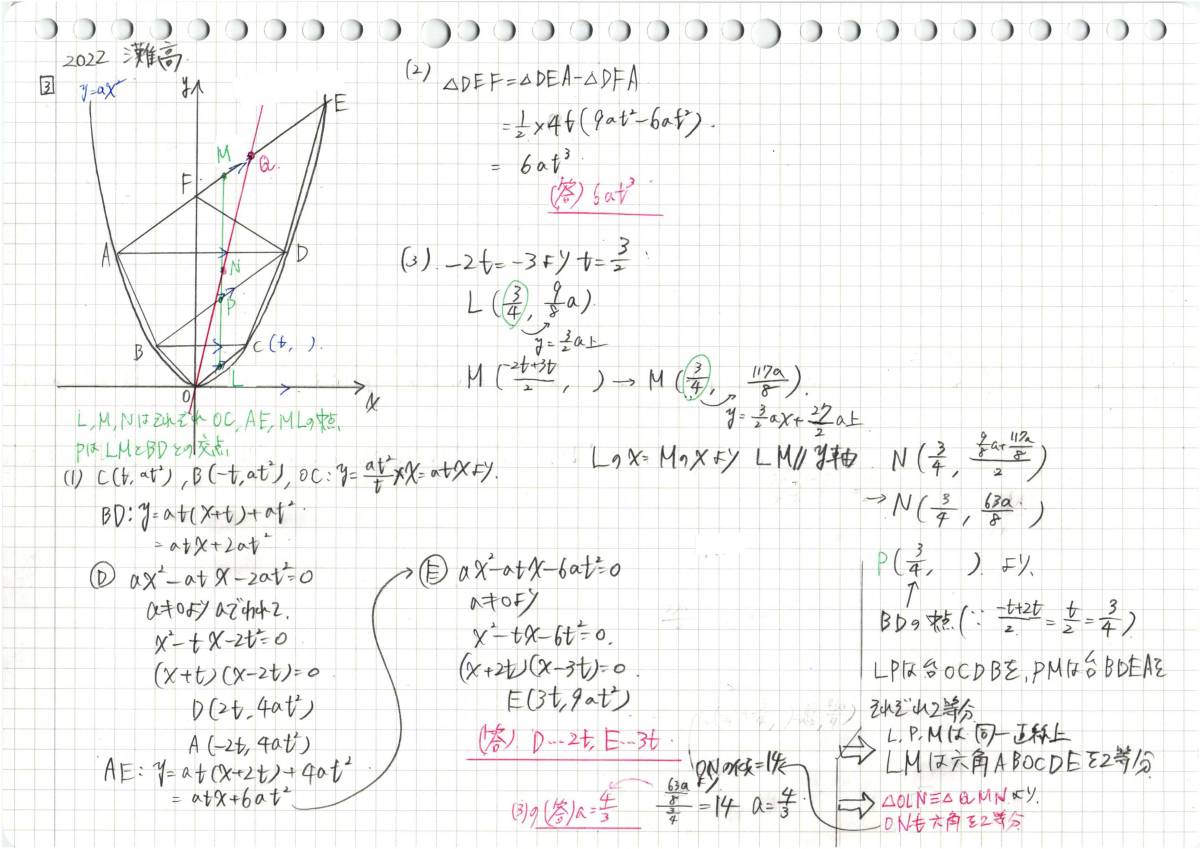 2022 灘高
3
y=ax²
y
E
M
Q
F
A
D
N
P
B
C(t, )
L
O
x
L, M, NはそれぞれOC, AE, MLの中点
PはLMとBDとの交点
(1) C(t, at²), B(-t, at²), OC: y=at²/t×x=atxより.
BD: y=at(x+t)+at²
=atx+2at²
D ax²-atx-2at²=0
a≠0よりaでわって.
x²-tx-2t²=0
(x+t)(x-2t)=0
D(2t, 4at²)
A(-2t, 4at²)
AE: y=at(x+2t)+4at²
=atx+6at²
E ax²-atx-6at²=0
a≠0より
x²-tx-6t²=0.
(x+2t)(x-3t)=0
E(3t, 9at²)
(答). D…2t, E…3t
(2) △DEF=△DEA-△DFA
=1/2×4t(9at²-6at²).
= 6at³
(答) 6at³
(3). -2t=-3より t=3/2
L(3/4, 9/8a)
y=3/2a上
M(-2t+3t/2, )→M(3/4, 117a/8).
y=3/2ax+27/2a上
Lのx=Mのxより LM//y軸
N(3/4, (9/8a+117a/8)/2)
→N(3/4, 63a/8)
P(3/4, ). より、
BDの中点(∵ -t+2t/2=t/2=3/4)
LPは台OCDBを, PMは台BDEAを
それぞれ2等分
L, P, Mは同一直線上
LMは六角ABOCDEを2等分
△OLN≡△QMNより.
ONも六角を2等分
ONの傾=14より
(63a/8)/(3/4)=14 a=4/3
(3)の(答)a=4/3